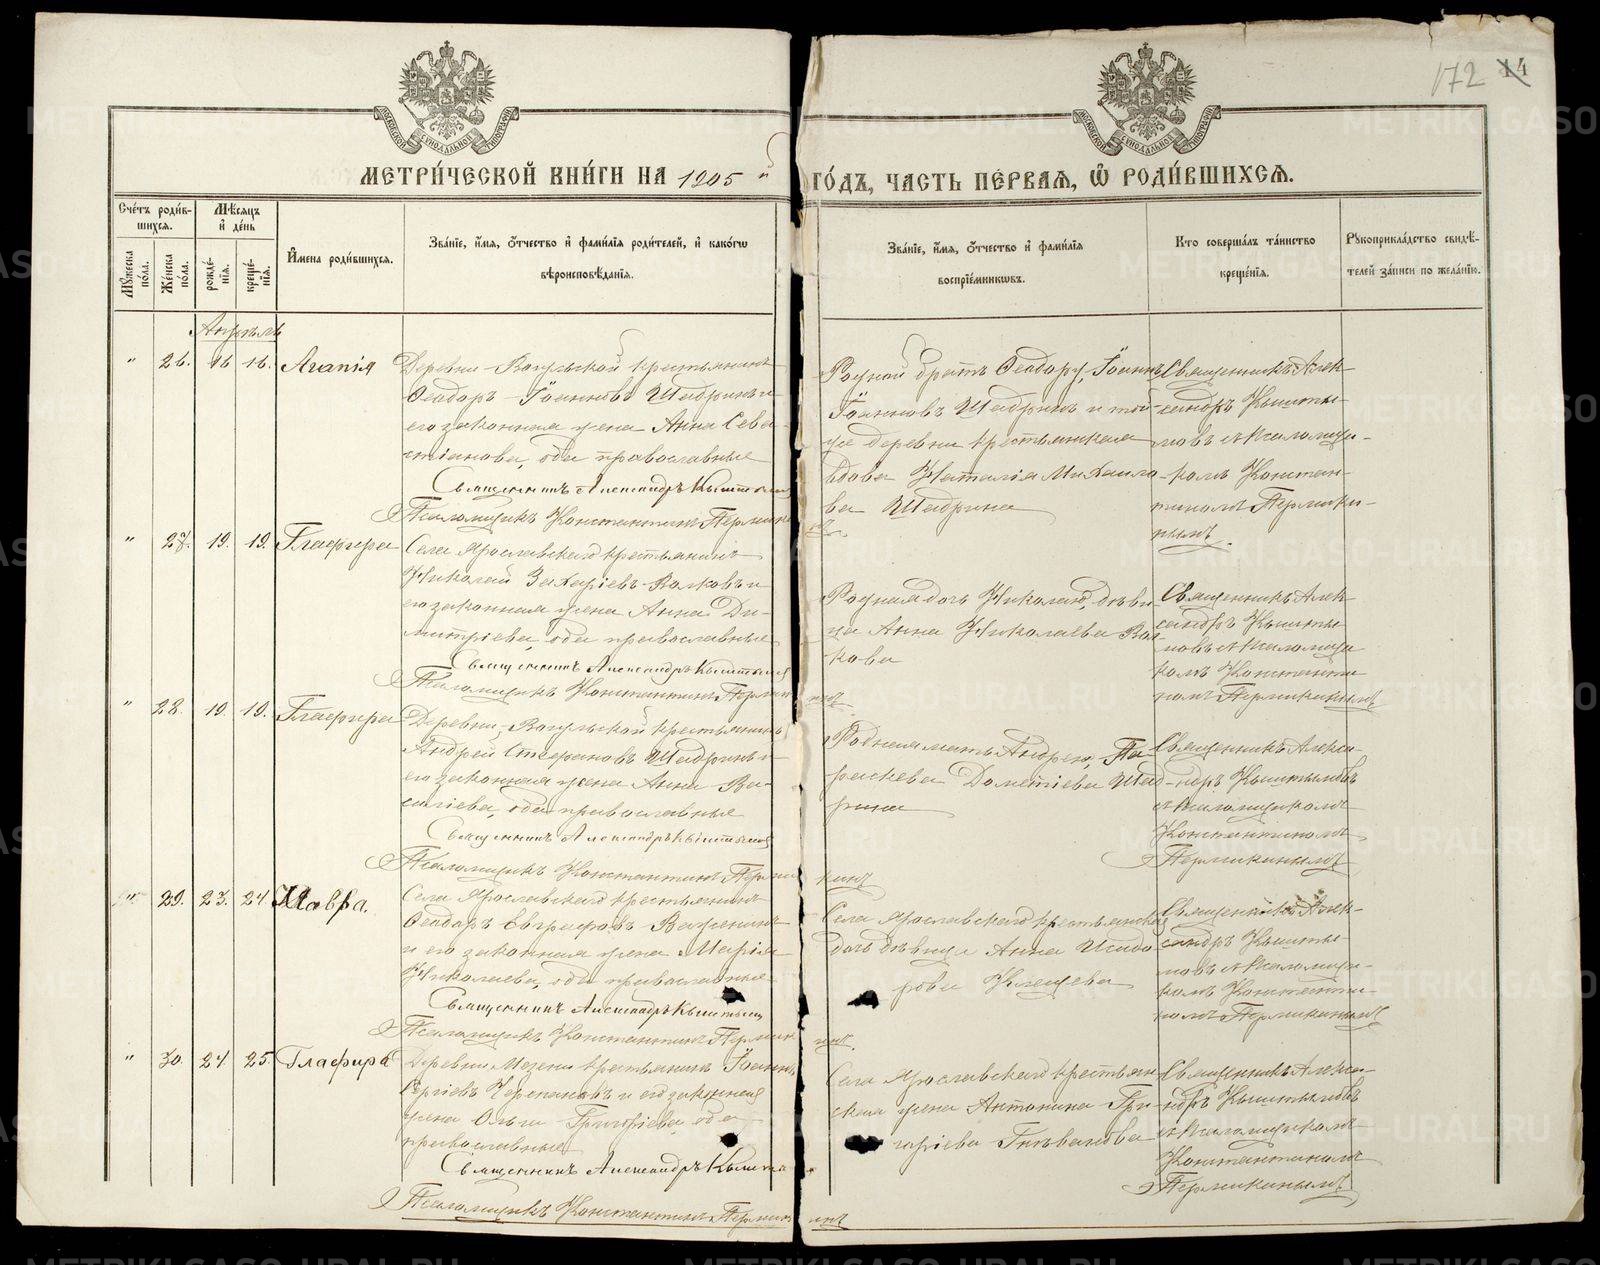 172 14
МОСКОВСКОЙ СѴНОДАЛЬНОЙ ТИПОГРАФІИ
МОСКОВСКОЙ СѴНОДАЛЬНОЙ ТИПОГРАФІИ
МЕТРИ́ЧЕСКОЙ КНИ́ГИ НА 1905 й ГО́ДЪ, ЧАСТЬ ПЕ́РВАЯ, Ѽ РОДИ́ВШИХСЯ.
Сче́тъ роди́в-
шихся.
Мѣ́сяцъ
и҆ де́нь
Му́жеска по́ла.
Же́нска по́ла.
рожде́-нїя.
креще́-нїя.
И҆мена роди́вшихся.
Зва́нїе, и҆́мя, ѻ҆́тчество и҆ фами́лїя роди́телей, и҆ како́гѡ
вѣроисповѣ́данїя.
Зва́нїе, и҆́мя, ѻ҆́тчество и҆ фами́лїя
воспрїе́мникѡвъ.
Кто соверша́лъ та́инство
креще́нїя.
Рукоприкла́дство свидѣ́-
телей за́писи по жела́нїю.
Апрѣль
" 26. 16 16. Агапія
Деревни Вогульской крестьянинъ
Ѳеодоръ Іоанновъ Шадринъ и
его законная жена Анна Сева-
стіанова, оба православные
Священникъ Александръ Кыштымовъ
Псаломщикъ Константинъ Пермикинъ
Родной братъ Ѳеодору, Іоаннъ
Іоанновъ Шадринъ и той-
же деревни крестьянская
вдова Наталія Михаило-
ва Шадрина
Священникъ Алек-
сандръ Кышты-
мовъ съ Псаломщи-
комъ Констан-
тиномъ Пермики-
нымъ.
" 27. 19. 19. Глафира
Села Ярославскаго крестьянинъ
Николай Захаріевъ Волковъ и
его законная жена Анна Ди-
митріева, оба православные
Священникъ Александръ Кыштымовъ
Псаломщикъ Константинъ Пермикинъ
Родная дочь Николаю, дѣви-
ца Анна Николаева Вол-
кова
Священникъ Алек-
сандръ Кышты-
мовъ съ Псаломщи-
комъ Константи-
номъ Пермикинымъ
" 28. 19. 19. Глафира
Деревни Вогульской крестьянинъ
Андрей Стефановъ Шадринъ и
его законная жена Анна Ва-
силіева, оба православные
Священникъ Александръ Кыштымовъ
Псаломщикъ Константинъ Пермикинъ
Родная мать Андрею, Па-
раскева Дометіева Шад-
рина
Священникъ Алекса-
ндръ Кыштымовъ
съ Псаломщикомъ
Константиномъ
Пермикинымъ
" 29. 23. 24 Клавра.
Села Ярославскаго крестьянинъ
Ѳеодоръ Евграфовъ Важенинъ
и его законная жена Марія
Николаева, оба православные
Священникъ Александръ Кыштымовъ
Псаломщикъ Константинъ Пермикинъ
Села Ярославскаго крестьянская
дочь дѣвица Анна Исидо-
рова Клещева
Священникъ Алек-
сандръ Кышты-
мовъ съ Псаломщи-
комъ Константи-
номъ Пермикинымъ
" 30. 24. 25. Глафира
Деревни Мезени крестьянинъ Іоаннъ
Сергіевъ Черепановъ и его законная
жена Ольга Григоріева, оба
православные
Священникъ Александръ Кыштымовъ
Псаломщикъ Константинъ Пермикинъ
Села Ярославскаго крестьян-
ская жена Антонина Гри-
горіева Гнѣванова
Священникъ Алекса-
ндръ Кыштымовъ
съ Псаломщикомъ
Константиномъ
Пермикинымъ
METRIKI.GASO-URAL.RU